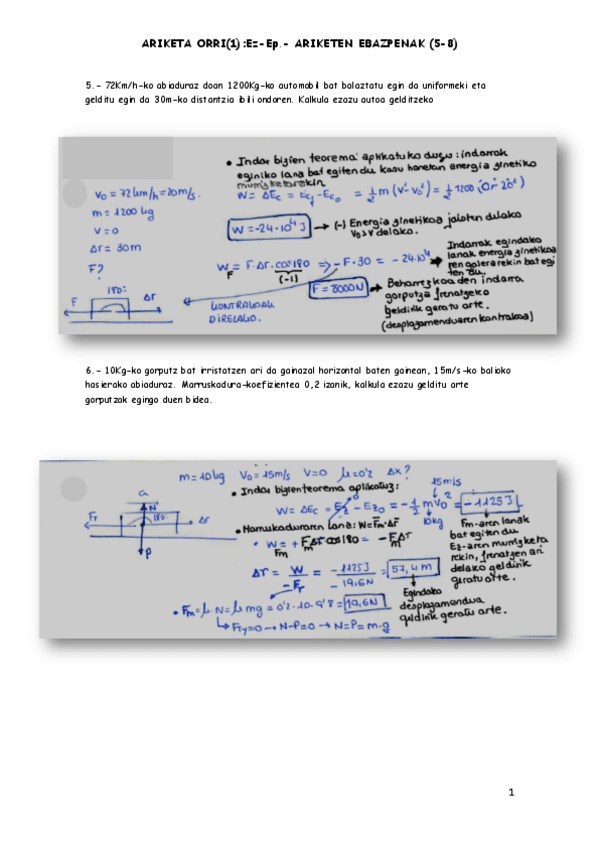 ARIKETA ORRI(1) :Ez-Ep.- ARIKETEN EBAZPENAK (5-8)
5.- 72Km/h-ko abiaduraz doan 1200Kg-ko automobil bat balaztatu egin da uniformeki eta
gelditu egin da 30m-ko distantzia ibili ondoren. Kalkula ezazu autoa gelditzeko
• Indar bizien teorema aplikatuko dugu: indarrak
eginiko lana bat egiten du kasu honetan energia zinetiko
V₀ = 72km/h = 20m/s.
W = ΔEc = Ecf - Ec₀ = ½ m (v² - v₀²) = ½ 1200 (0² - 20²)
m = 1200 kg
V = 0
W = -24·10⁴ J → (-) Energia zinetikoa jaisten delako
V₀ > V delako.
Δr = 30m
F?
W = F·Δr·cos180 ⇒ -F·30 = -24·10⁴ → Indarrak egindako
F
(-1)
lanak energia zinetikoa
180°
F Δr
KONTRAKOAK
DIRELAKO.
F = 8000N → Beharrezkoa den indarra
gorputza frenatzeko
geldirik geratu arte.
(desplazamenduaren kontrakoa)
6.- 10Kg-ko gorputz bat irristatzen ari da gainazal horizontal baten gainean, 15m/s-ko balioko
hasierako abiaduraz. Marruskadura-koefizientea 0,2 izanik, kalkula ezazu gelditu arte
gorputzak egingo duen bidea.
m = 10kg V₀ = 15m/s V = 0 μ = 0'2 Δx?
• Indar bizien teorema aplikatuz:
15m/s
W = ΔEc = Ez - Ez₀ = -½ m v₀² = -1125 J
10kg
Fr N 180° Δr
P
• Marruskaduraren lana: W = Fm·Δr
Fm-aren lanak
bat egiten du
Ez-aren murrizketa
rekin, frenatzen ari
delako geldirik
geratu arte.
• W = + Fm Δr cos180 = - Fm Δr
Fm
Δr = W / -Fr = -1125J / -19,6N = 57,4 m
Egindako
desplazamendua
geldirik geratu arte.
• Fm = μ·N = μ·mg = 0'2·10·9'8 = 19,6N
↳ Fry = 0 → N-P = 0 → N = P = m·g
1